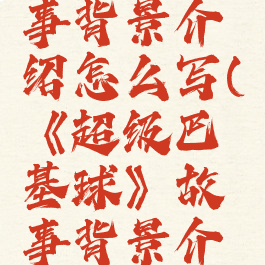 事背景介
绍怎么写(
《超级巴
基球》故
事背景介